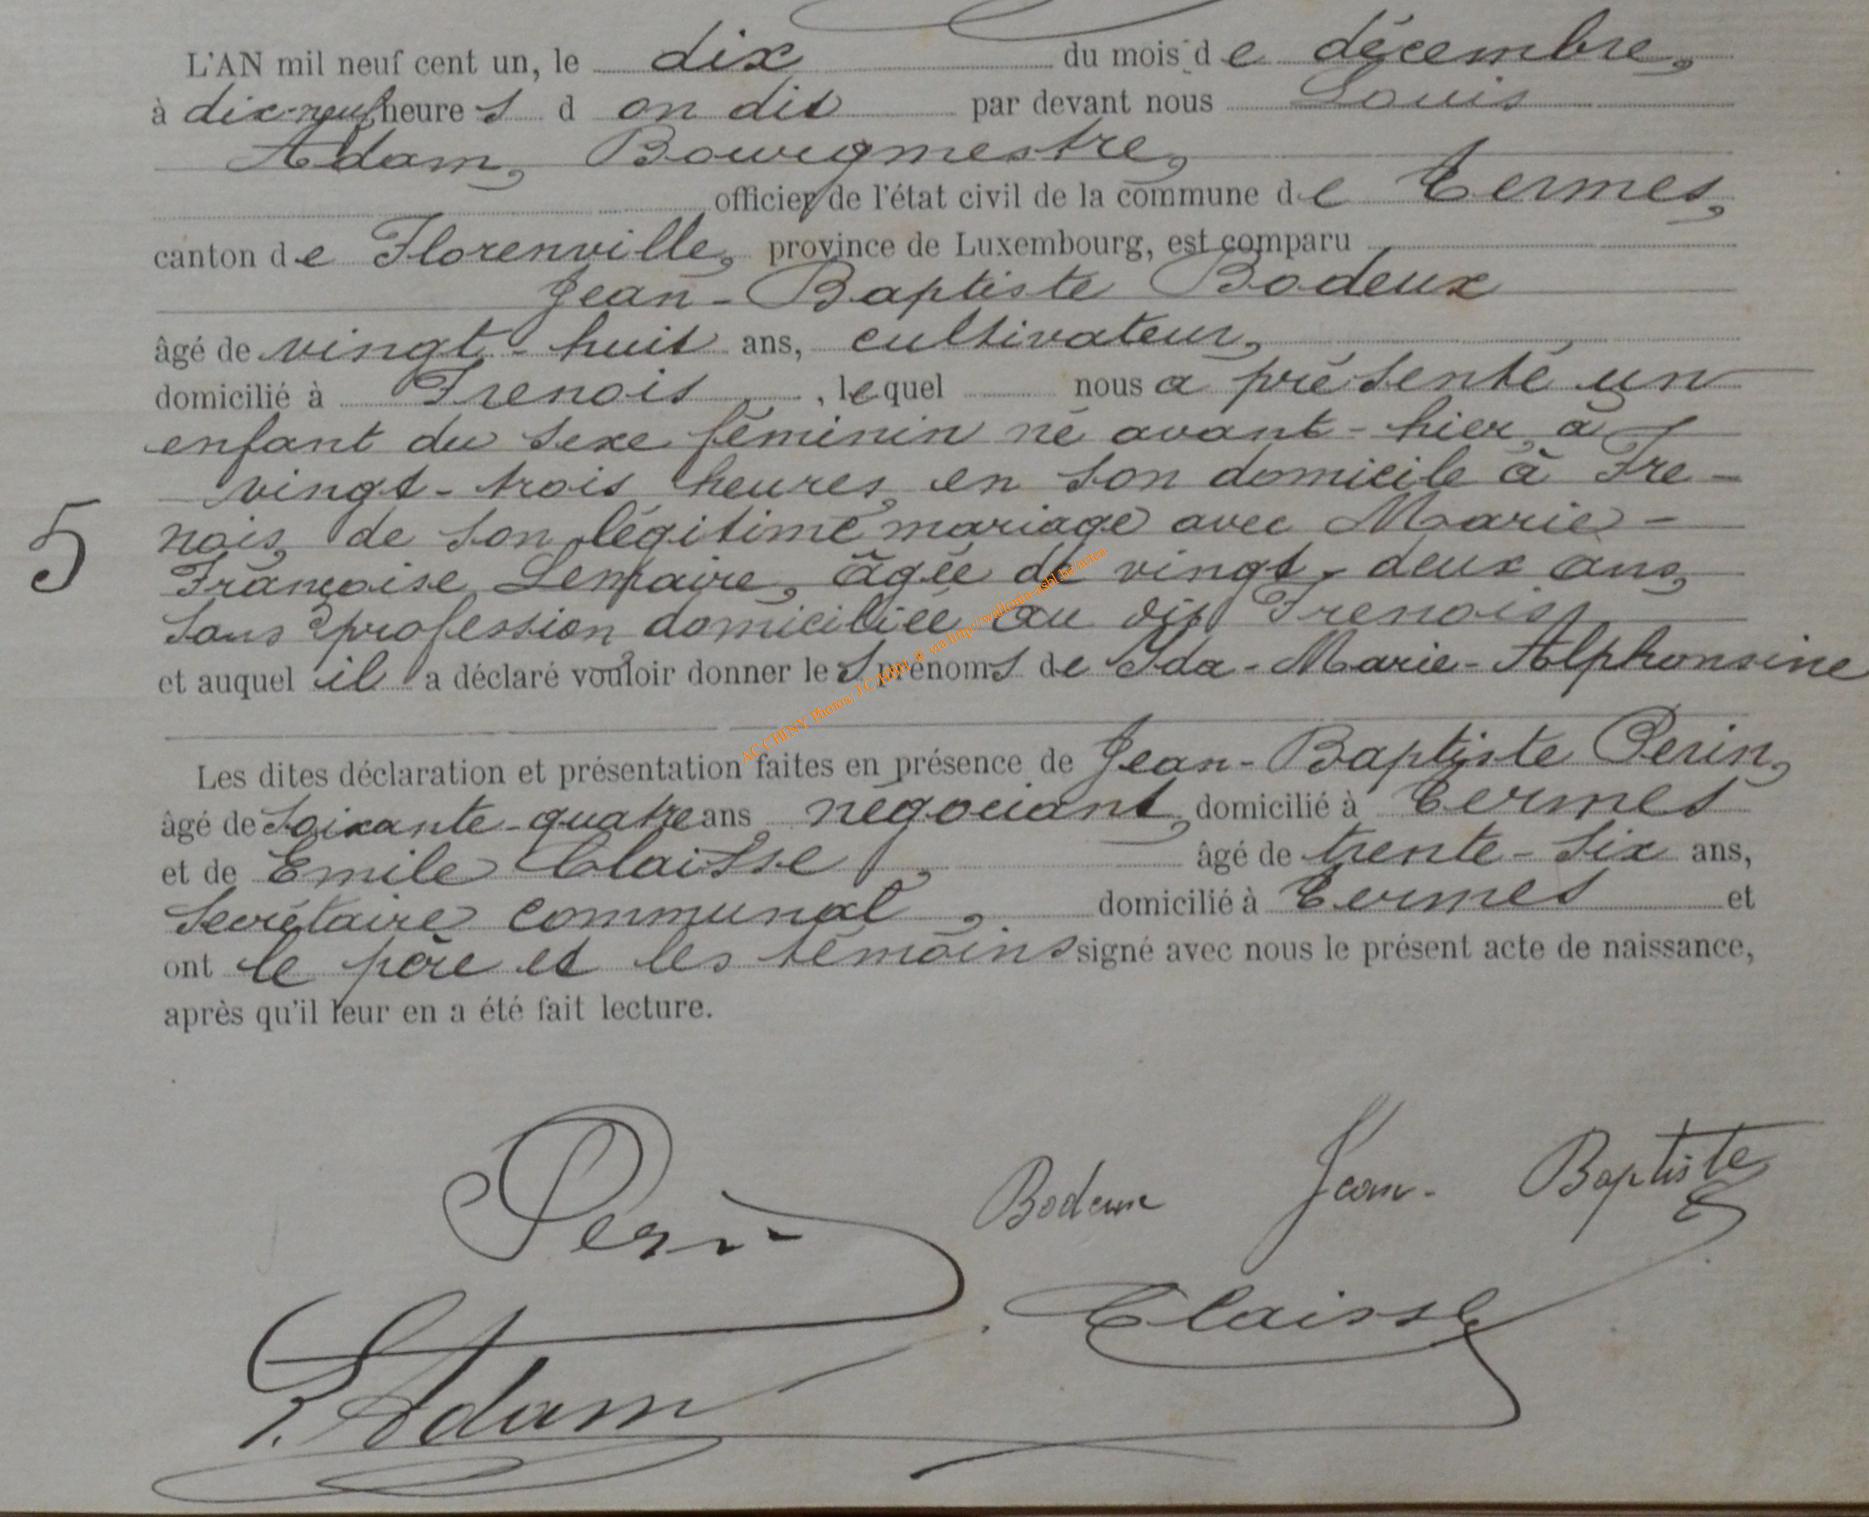 L'AN mil neuf cent un, le dix du mois de décembre,
à dix-neuf heures d on dit par devant nous Louis
Adam, Bourgmestre,
officier de l'état civil de la commune de Termes,
canton de Florenville, province de Luxembourg, est comparu
Jean-Baptiste Bodeux
âgé de vingt-huit ans, cultivateur,
domicilié à Frenois, lequel nous a présenté un
enfant du sexe féminin né avant-hier, à
vingt-trois heures, en son domicile à Fre-
nois, de son légitime mariage avec Marie-
5
Françoise Lempaire, âgée de vingt-deux ans,
sans profession, domiciliée au dit Frenois,
et auquel il a déclaré vouloir donner les prénoms de Ida-Marie-Alphonsine
Les dites déclaration et présentation faites en présence de Jean-Baptiste Perin,
âgé de soixante-quatre ans, négociant, domicilié à Termes
et de Emile Claisse, âgé de trente-six ans,
secrétaire communal, domicilié à Termes et
ont le père et les témoins signé avec nous le présent acte de naissance,
après qu'il leur en a été fait lecture.
Perin Bodeux Jean-Baptiste
L. Adam Claisse